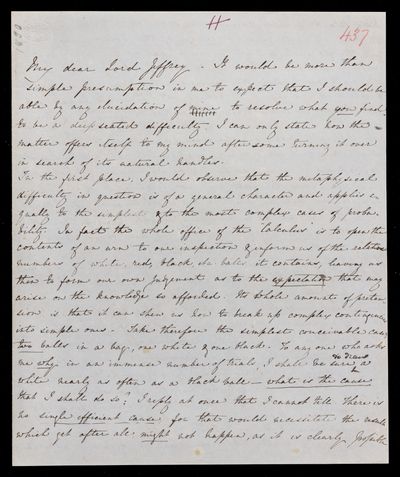 H
437
My dear Lord Jeffrey. It would be more than
simple presumption in me to expect that I should be
able by any elucidation of mine to resolve what you find
to be a deep seated difficulty. I can only state how the
matter offers itself to my mind after some turning it over
in search of its natural handles.
In the first place, I would observe that the metaphysical
difficulty in question is of a general character and applies e-
qually to the simplest & to the most complex cases of proba-
bility. In fact the whole office of the Calculus is to open the
contents of an urn to our inspection & inform us of the relative
numbers of white, red, black, &c balls it contains, leaving us
then to form our own judgement as to the expectation that may
arise on the knowledge so afforded. Its whole amount of preten-
sion is that it can shew us how to break up complex contingencies
into simple ones. Take therefore the simplest conceivable case
two balls in a bag, one white & one black. To any one who asks
me why in an immense number of trials, I shall be sure to draw a
white nearly as often as a black ball — what is the cause
that I shall do so? I reply at once that I cannot tell. There is
no single efficient cause for that would necessitate the result
which yet after all might not happen, as it is clearly